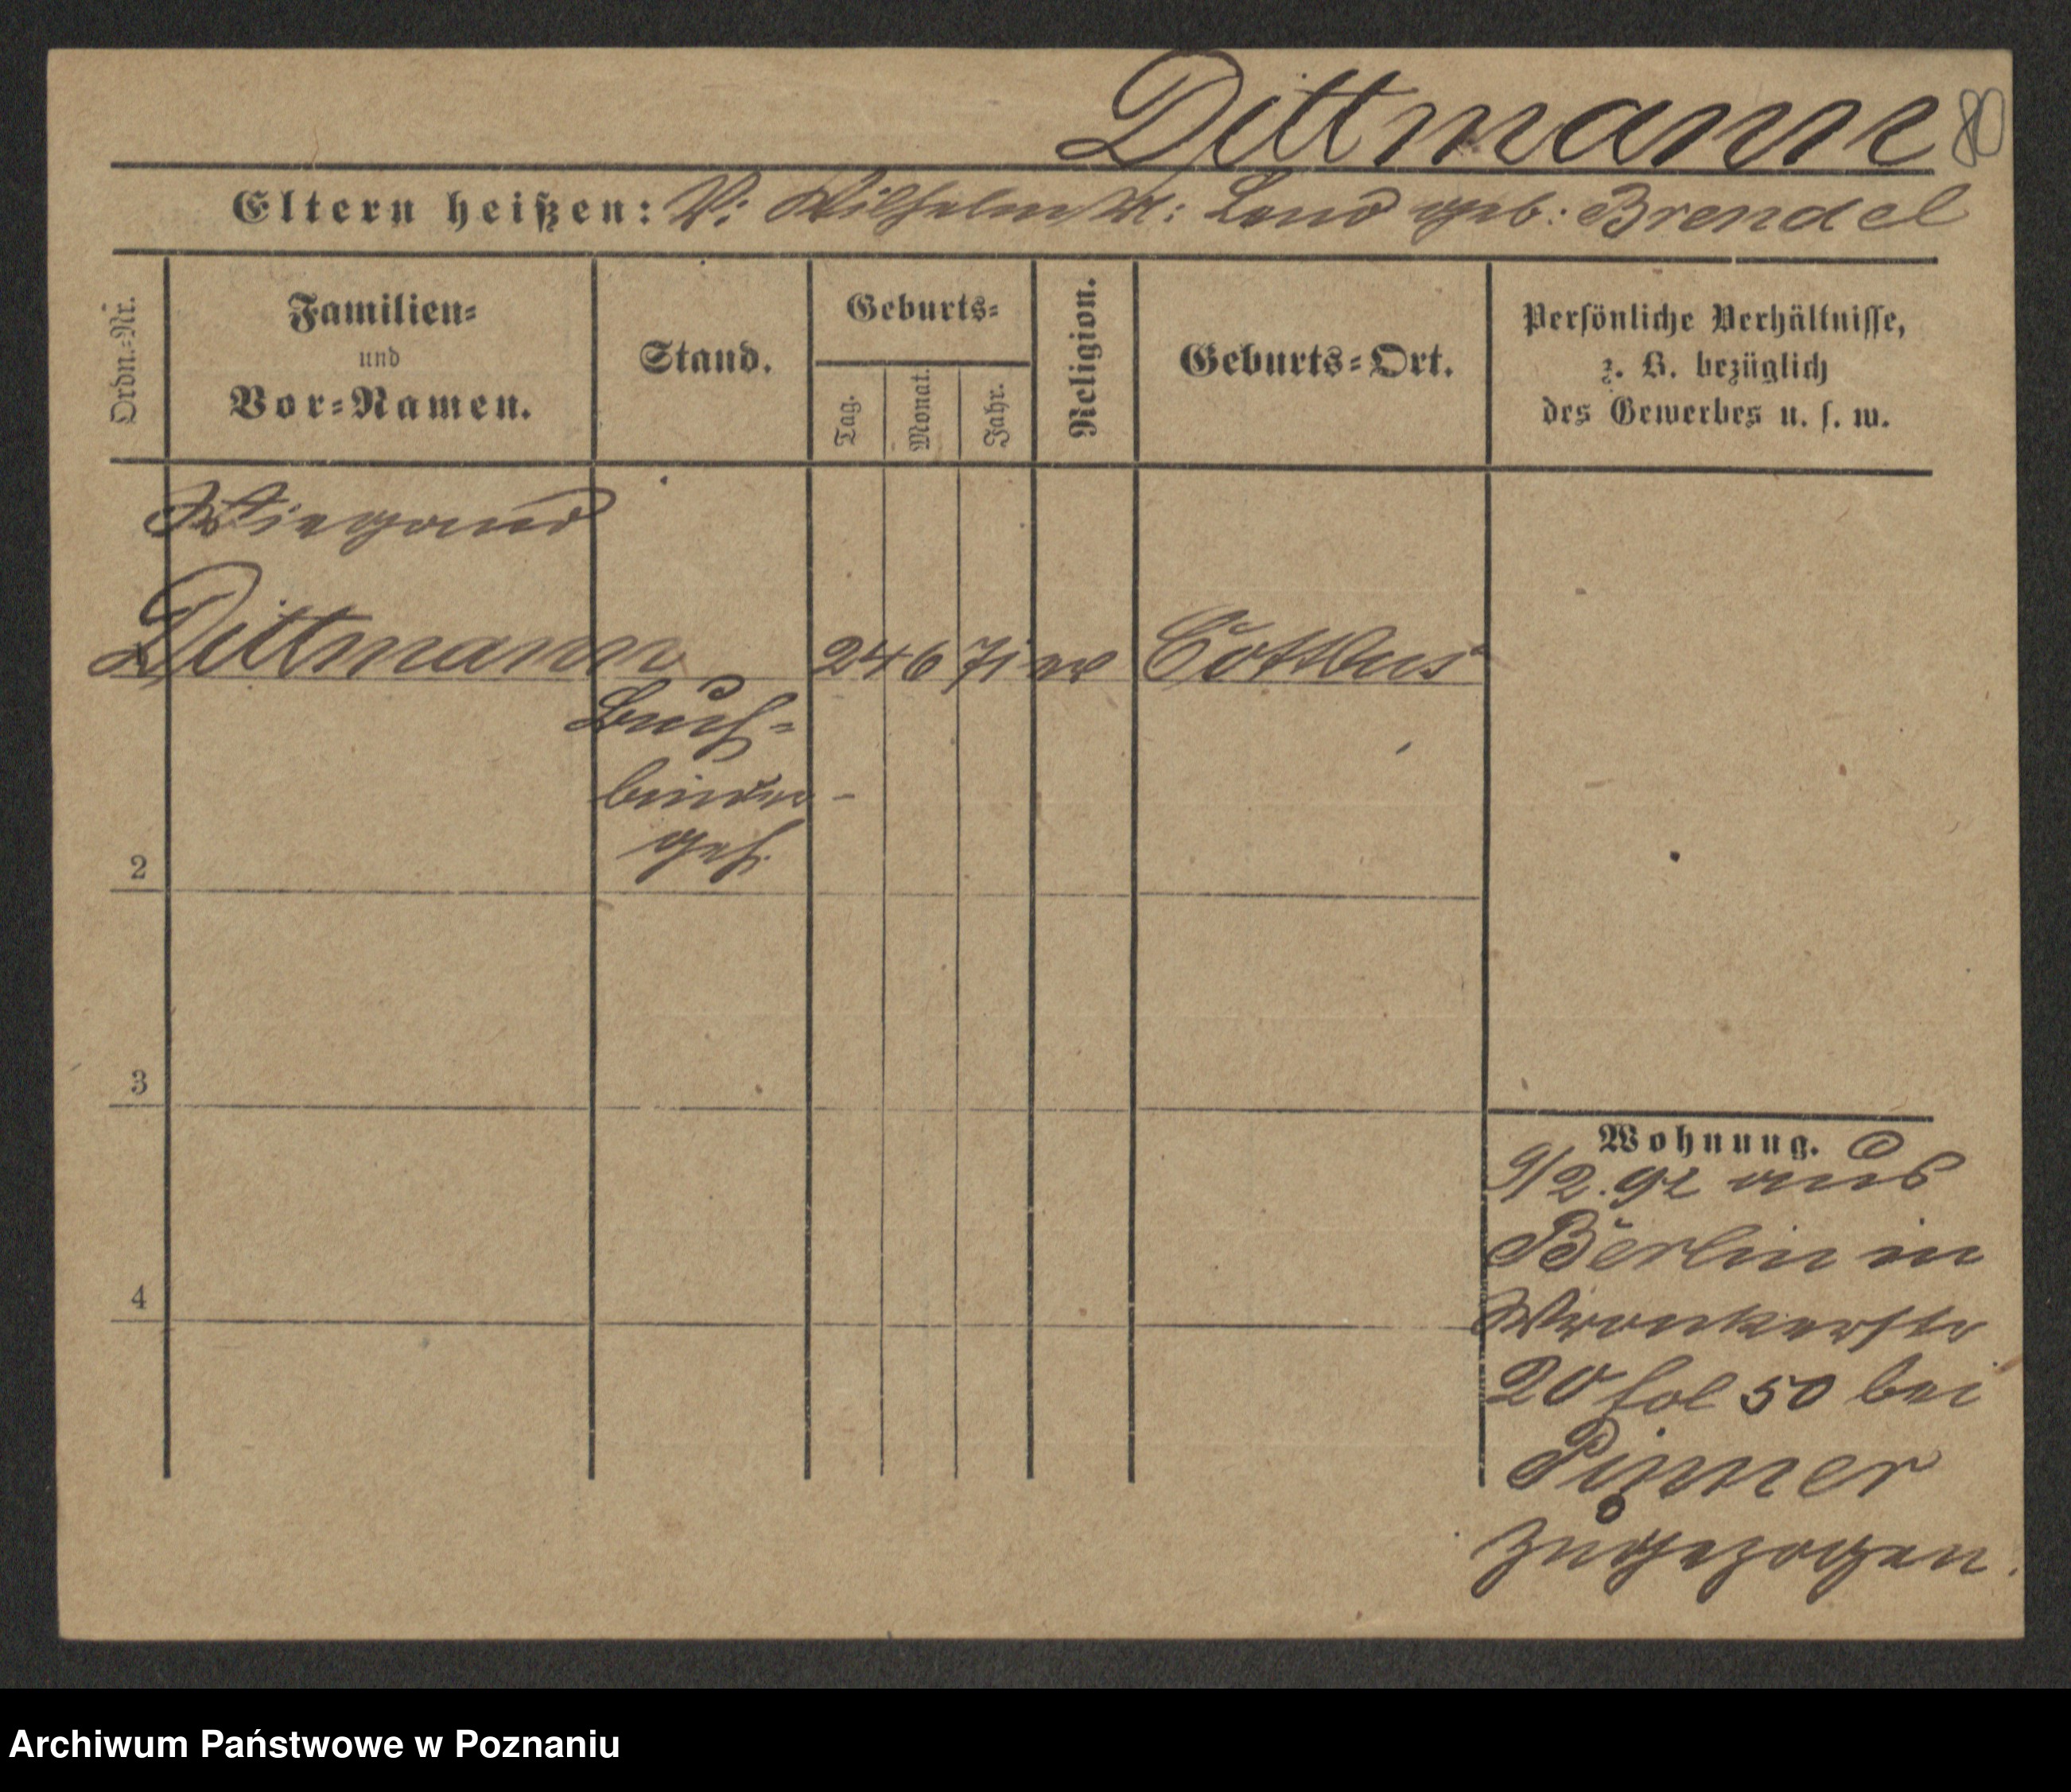 Dittmann 80
Eltern heißen: V: Wilhelm M: geb: Brendel
Ordn.-Nr.
Familien-
und
Vor-Namen.
Stand.
Geburts-
Tag.
Monat.
Jahr.
Religion.
Geburts-Ort.
Persönliche Verhältnisse,
z. B. bezüglich
des Gewerbes u. s. w.
Wiegand
Dittmann 24 6 71 ev Cottbus
Buch-
binder-
geh.
2
3
4
Wohnung.
9/2. 92 aus
Berlin in
Wronkerstr
20 fol 50 bei
Pinner
zugezogen.
Archiwum Państwowe w Poznaniu